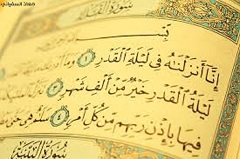 سُورَةُ القَدْرِ
بِسْمِ
إِنَّآ أَنزَلْنَٰهُ فِى لَيْلَةِ ٱلْقَدْرِ ١
لَيْلَةُ ٱلْقَدْرِ خَيْرٌ مِّنْ أَلْفِ شَهْرٍ ٣
فِيهَا بِإِذْنِ رَبِّهِم مِّن كُلِّ أَمْرٍ ٤ سَلَٰمٌ هِىَ
سُورَةُ البَيِّنَةِ